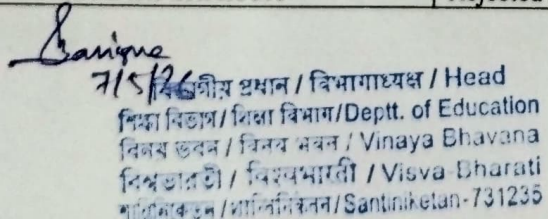 7/5/26
বিভাগীয় প্রধান / विभागाध्यक्ष / Head
শিক্ষা বিভাগ / शिक्षा विभाग/Deptt. of Education
বিনয় ভবন / विनय भवन / Vinaya Bhavana
বিশ্বভারতী / विश्वभारती / Visva-Bharati
শান্তিনিকেতন/शान्तिनिकेतन/Santiniketan-731235